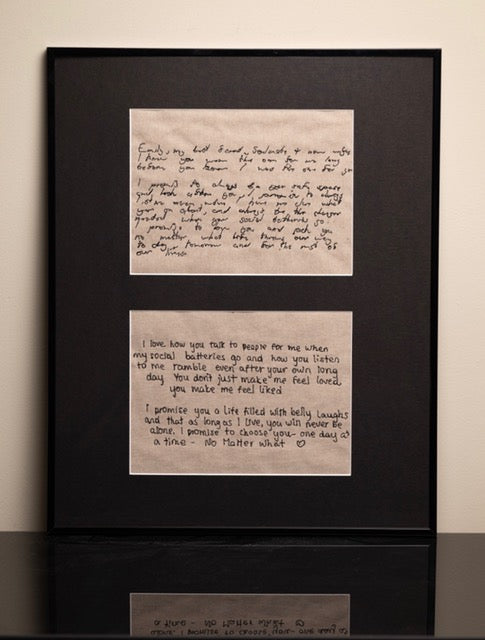 Emily, my best friend, Soulmate + now wife
I knew you were the one for me long
before you knew I was the one for you
I promise to always be your safe space
and look after you, I promise to always
listen even when I have no clue what
your on about, and always be the
when your social batteries go.
I promise to love you and pick you
no matter what life throws our way
today, tomorrow and for the rest of
our lives
I love how you talk to people for me when
my social batteries go and how you listen
to me ramble even after your own long
day. You don't just make me feel loved,
you make me feel liked
I promise you a life filled with belly laughs
and that as long as I live, you will never be
alone. I promise to choose you- one day @
a time - No Matter What ♡